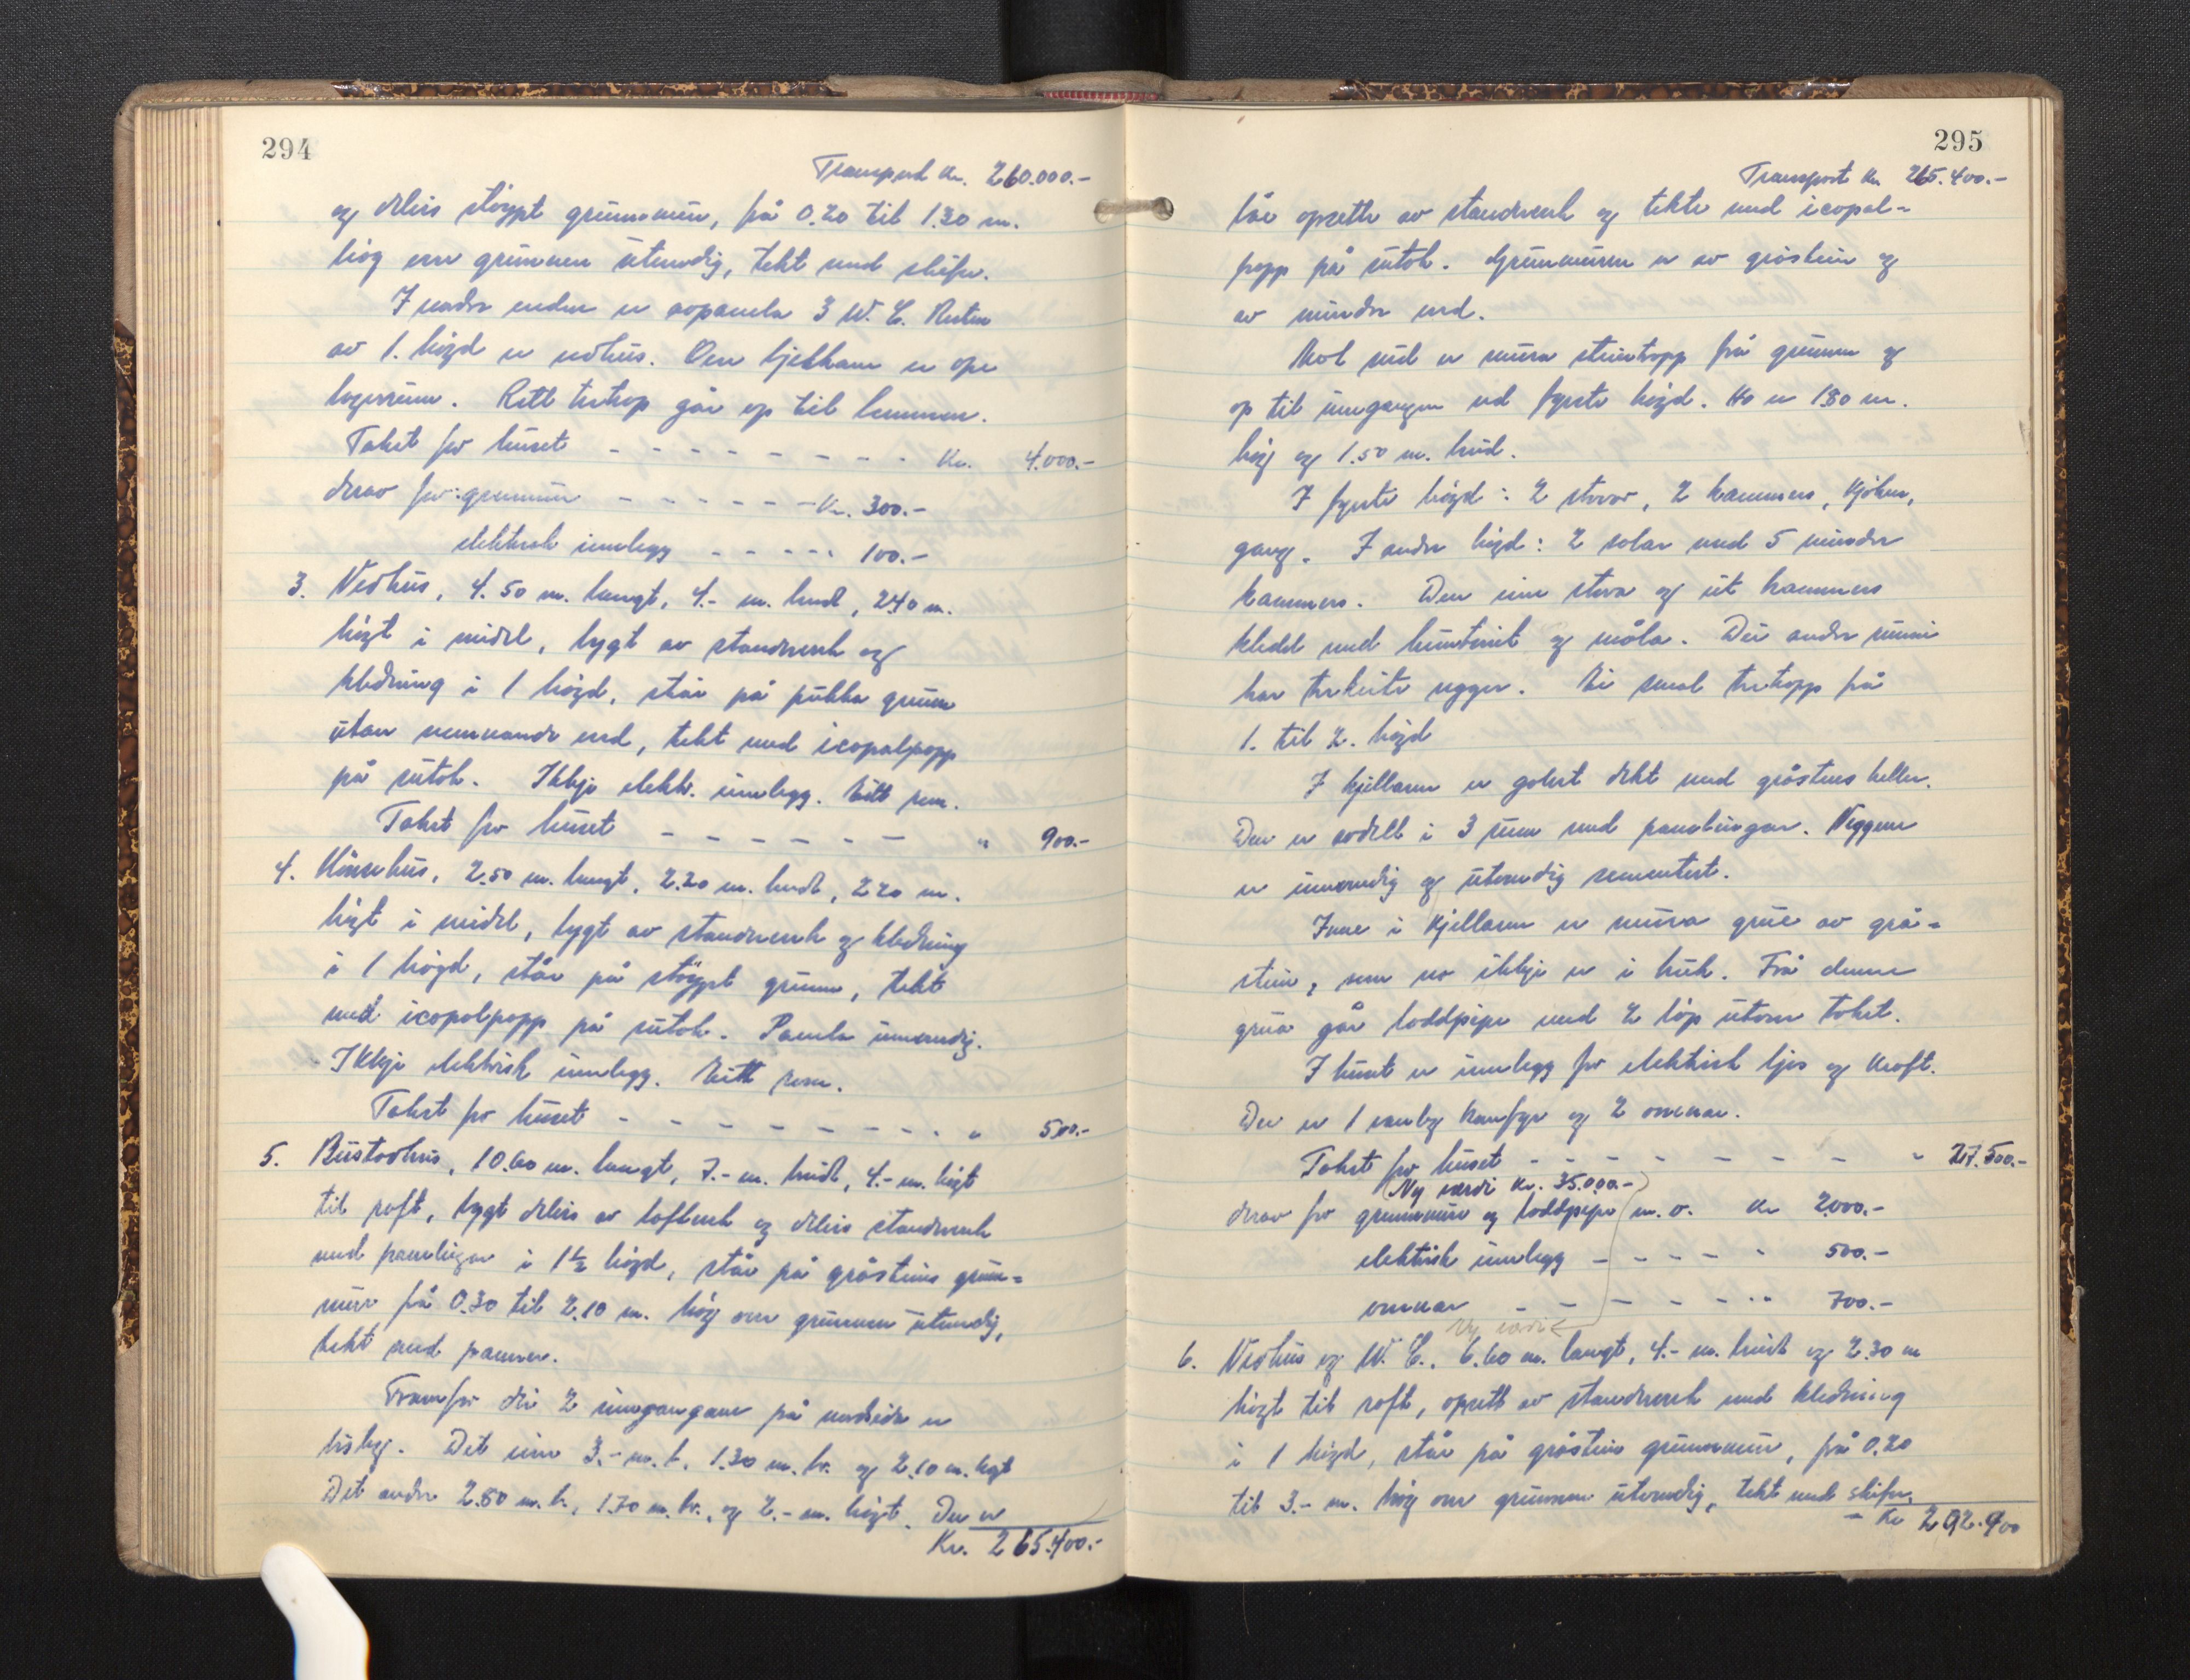 294
Transport Kr. 260.000.-
og delvis støypt grunnmur, frå 0.20 til 1.30 m.
høg over grunnen utvendig, tekt med skifer.
I vestre enden er avpanela 3 W. C. Resten
av 1. høgd er vedhus. Over bjelkane er ope
lagerrum. Rett tretrop går op til lemmen.
Takst for huset - - - - - - - - - Kr. 4.000.-
derav for: grunnmur - - - - - - - Kr. 300.-
elektrisk innlegg - - - - " 100.-
3. Vedhus, 4.50 m. langt, 4.- m. breidt, 2.40 m.
høgt i midel, bygt av standverk og
kledning i 1 høgd, står på pukka grunn
utan nemnande verd, tekt med icopalpapp
på sutak. Ikkje elektr. innlegg. Eitt rom.
Takst for huset - - - - - - - " 900.-
4. Hønsehus, 2.50 m. langt, 2.20 m. breidt, 2.20 m.
høgt i midel, bygt av standverk og kledning
i 1 høgd, står på støypt grunn, tekt
med icopalpapp på sutak. Panela innvendig.
Ikkje elektrisk innlegg. Eitt rom.
Takst for huset - - - - - - - - - " 500.-
5. Bustadhus, 10.60 m. langt, 7.- m. breidt, 4.- m. høgt
til roft, bygt delvis av lafteverk og delvis standverk
med panelingar i 1½ høgd, står på gråsteins grun=
mur frå 0.30 til 2.10 m. høg over grunnen utvendig,
tekt med panner.
Framfor dei 2 inngangane på nordsida er
bislag. Det eine 3.- m. l. 1.30 m. br. og 2.10 m. høgt
Det andre 2.80 m. l., 1.70 m. br., og 2.- m. høgt. Dei er
Kr. 265.400.-
295
Transport Kr. 265.400.-
båe opsette av standverk og tekte med icopal=
papp på sutak. Grunnmuren er av gråstein og
av mindre verd.
Mot sud er mura steintropp frå grunnen og
op til inngangen ved fyrste høgd. Ho er 1.80 m.
høg og 1.50 m. breid.
I fyrste høgd: 2 stovor, 2 kammers, kjøken,
gang. I andre høgd: 2 salar med 5 mindre
kammers. Den eine stova og eit kammers
kledd med huntonit og måla. Dei andre rumi
har trekvite vegger. Ei smal tretropp frå
1. til 2. høgd
I kjellaren er golvet dekt med gråsteins heller.
Den er avdelt i 3 rum med panelingar. Veggene
er innvendig og utvendig sementert.
Inne i kjellaren er mura grue av grå=
stein, som no ikkje er i bruk. Frå denne
grua går loddpipe med 2 løp utover taket.
I huset er innlegg for elektrisk ljos og kraft.
Der er 1 vanleg kamfyr og 2 omnar.
Takst for huset - - - - - - - - - " 27.500.-
(Ny verdi kr. 35.000.-)
derav for grunnmur og loddpipe m. v. Kr 2.000.-
elektrisk innlegg - - - - " 500.-
omnar - - - - - - " 700.-
Ny verdi
6. Vedhus og W. C., 6.60 m. langt, 4.- m. breidt og 2.30 m
høgt til roft, opsett av standverk med kledning
i 1 høgd, står på gråsteins grunnmur, frå 0.20
til 3.- m. høg over grunnen utvendig, tekt med skifer.
- Kr 292.900